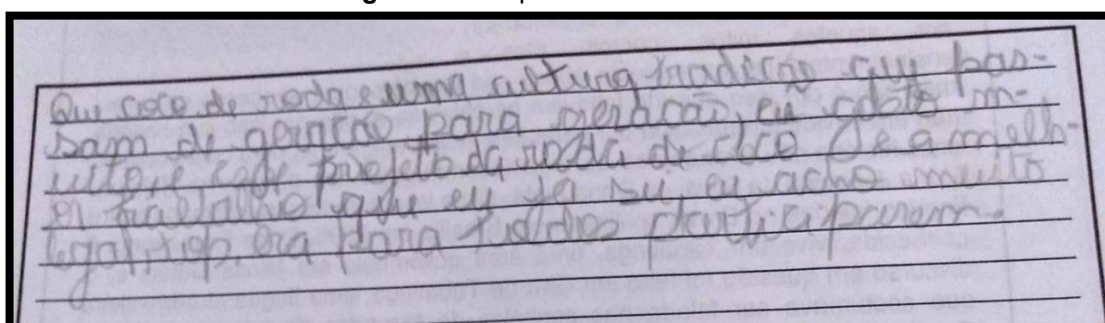 Que coco de roda e uma cultura tradicão que pas-
sam de geração para geração, eu gosto m-
uito, e projeto da roda de coco
trabalho que eu ja eu acho muito
legal, top, era para todos participarem.